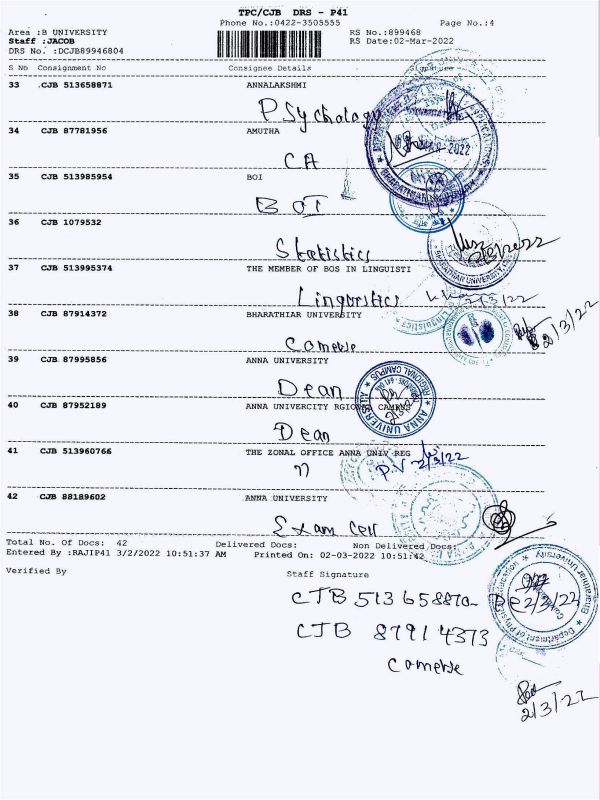 TPC/CJB DRS - P41
Phone No.:0422-3505555 Page No.:4
Area :B UNIVERSITY RS No.:899468
Staff :JACOB RS Date:02-Mar-2022
DRS No. :DCJB89946804
S No Consignment No Consignee Details Signature
33 CJB 513658871 ANNALAKSHMI
Psychology
34 CJB 87781956 AMUTHA
CA
35 CJB 513985954 BOI
BOI
36 CJB 1079532
Statistics
37 CJB 513995374 THE MEMBER OF BOS IN LINGUISTI
Linguistics 2/3/22
38 CJB 87914372 BHARATHIAR UNIVERSITY
2/3/22
39 CJB 87995856 ANNA UNIVERSITY
Dean
40 CJB 87952189 ANNA UNIVERCITY RGIONAL CAMPUS
Dean
41 CJB 513960766 THE ZONAL OFFICE ANNA UNIV REG
P.V 2/3/22
42 CJB 88189602 ANNA UNIVERSITY
Exam cell
Total No. Of Docs: 42 Delivered Docs: Non Delivered Docs:
Entered By :RAJIP41 3/2/2022 10:51:37 AM Printed On: 02-03-2022 10:51:42
Verified By Staff Signature
CJB 513658870-
2/3/22
CJB 87914373
2/3/22